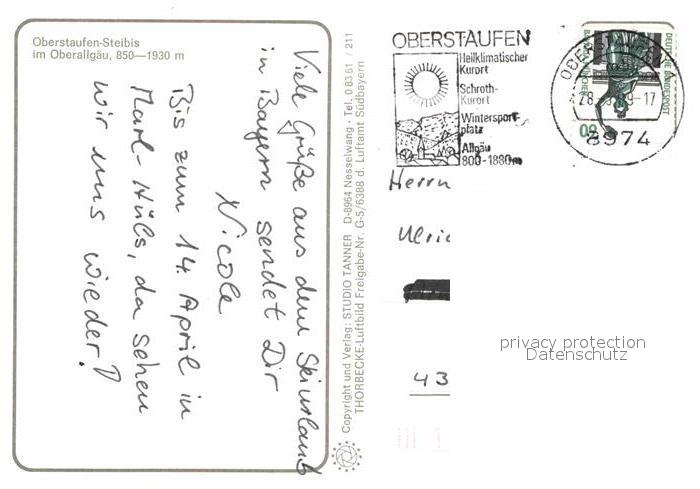 Oberstaufen-Steibis
im Oberallgäu, 850—1930 m
Viele Grüße aus dem Skiurlaub
in Bayern sendet Dir
Nicole
Bis zum 14. April in
Marl-Hüls, da sehen
wir uns wieder!
Copyright und Verlag: STUDIO TANNER D-8964 Nesselwang · Tel. 0 83 61 / 211
THORBECKE-Luftbild Freigabe-Nr. G-5/6388 d. Luftamt Südbayern
OBERSTAUFEN
Heilklimatischer
Kurort
Schroth-
Kurort
Wintersport-
platz
Allgäu
800-1880m
DEUTSCHE BUNDESPOST
60
8974
Herrn
Ulric
43
privacy protection
Datenschutz